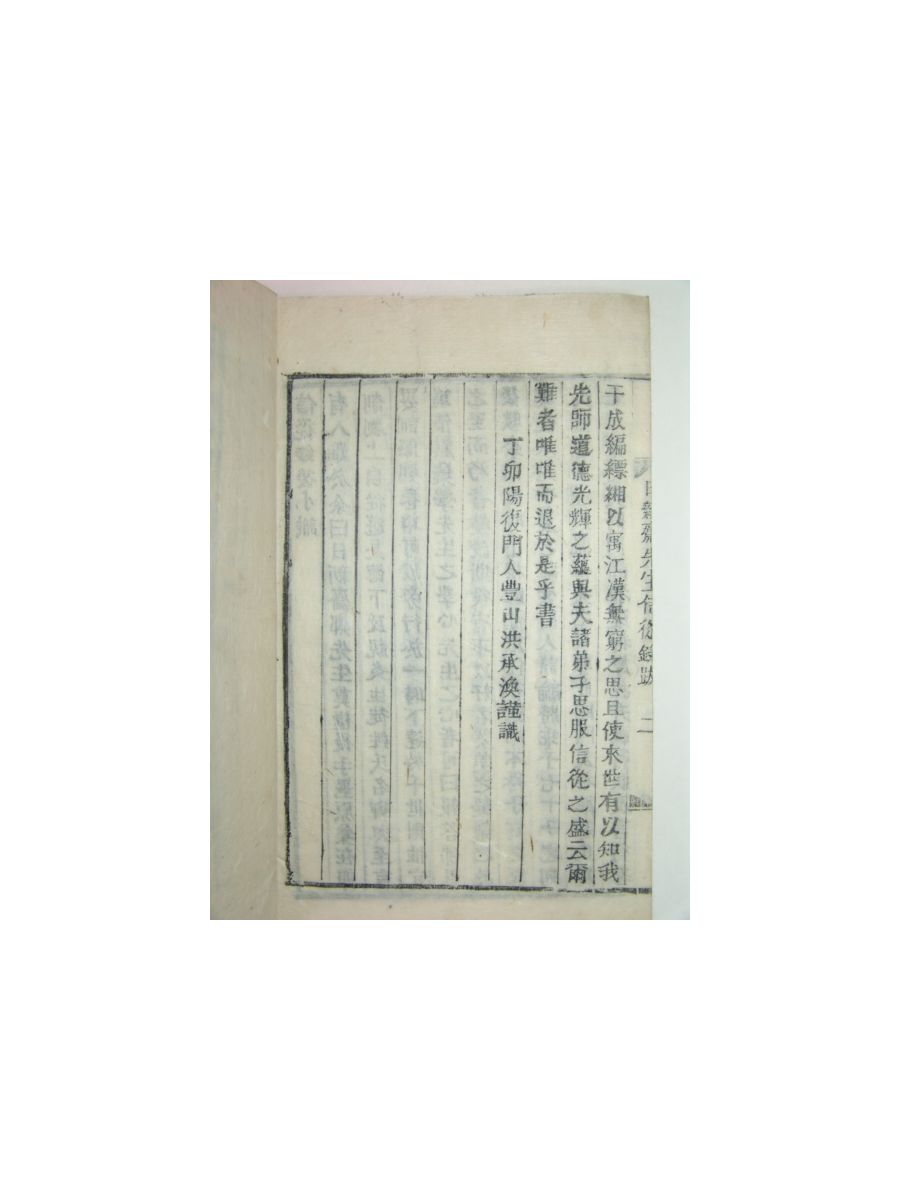 日新齋先生信從錄跋 二
于成編縹緗以寓江漢無窮之思且使來世有以知我
先師道德光輝之蘊與夫諸弟子思服信從之盛云爾
難者唯唯而退於是乎書
丁卯陽復門人豐山洪承渙謹識